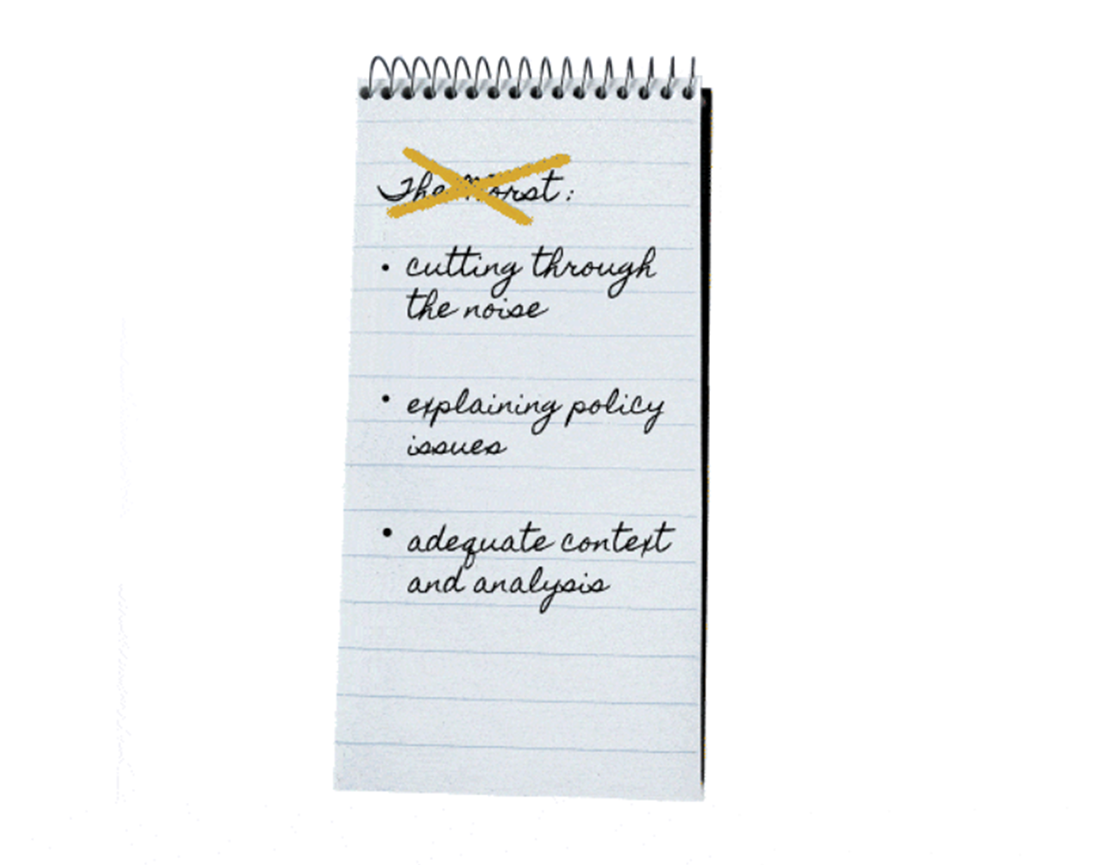 The Worst:
• cutting through
the noise
• explaining policy
issues
• adequate context
and analysis